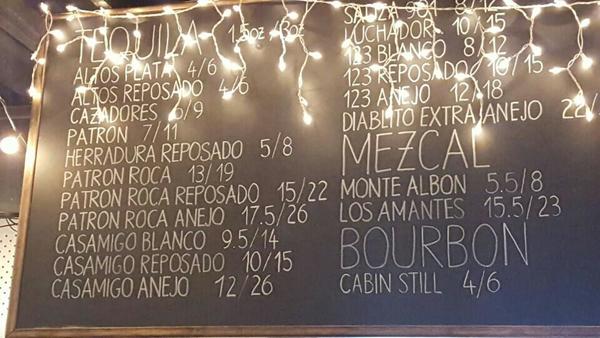 TEQUILA 1.5oz/3oz
ALTOS PLATA 4/6
ALTOS REPOSADO 4/6
CAZADORES 6/9
PATRON 7/11
HERRADURA REPOSADO 5/8
PATRON ROCA 13/19
PATRON ROCA REPOSADO 15/22
PATRON ROCA ANEJO 17.5/26
CASAMIGO BLANCO 9.5/14
CASAMIGO REPOSADO 10/15
CASAMIGO ANEJO 12/26
SAUZA 901 8/12
LUCHADOR 10/15
123 BLANCO 8/12
123 REPOSADO 10/15
123 ANEJO 12/18
DIABLITO EXTRA ANEJO 22/
MEZCAL
MONTE ALBON 5.5/8
LOS AMANTES 15.5/23
BOURBON
CABIN STILL 4/6